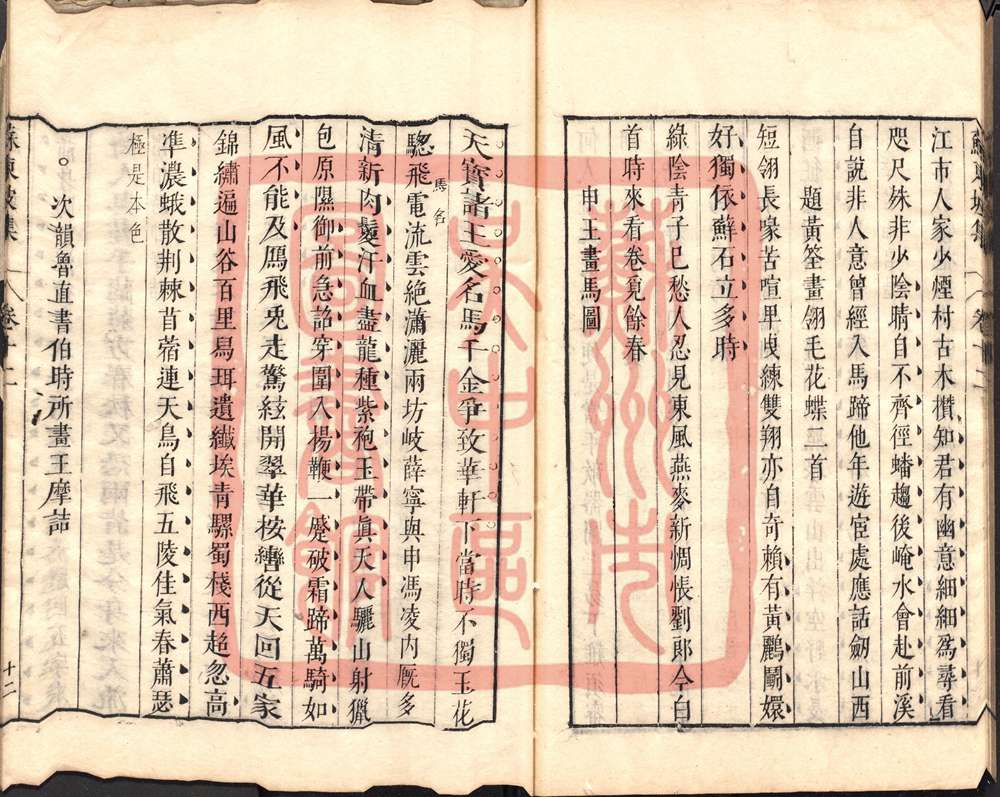 江市人家少煙村古木攢知君有幽意細細爲尋看
咫尺殊非少陰晴自不齊徑蟠趨後崦水會赴前溪
自說非人意曾經入馬蹄他年遊宦處應話劒山西
題黃筌畫翎毛花蝶二首
短翎長喙苦喧卑曳練雙翔亦自奇賴有黃鸝鬭嬛
好獨依蘚石立多時
綠陰青子已愁人忍見東風燕麥新惆悵劉郞今白
首時來看卷覓餘春
申王畫馬圖
天寶諸王愛名馬千金爭致華軒下當時不獨玉花
驄飛電流雲絶瀟灑兩坊岐薛寧與申馮凌内厩多
馬名
清新肉鬉汗血盡龍種紫袍玉帶眞天人驪山射獵
包原隰御前急詔穿圍入揚鞭一蹙破霜蹄萬騎如
風不能及鴈飛兎走驚絃開翠華按轡從天回五家
錦繡遍山谷百里舄珥遺纖埃青騾蜀棧西超忽高
凖濃蛾散荆棘苜蓿連天鳥自飛五陵佳氣春蕭瑟
極是本色
次韻魯直書伯時所畫王摩詰
蘇東坡集
卷十二
十二
蘇州市吳中區圖書館